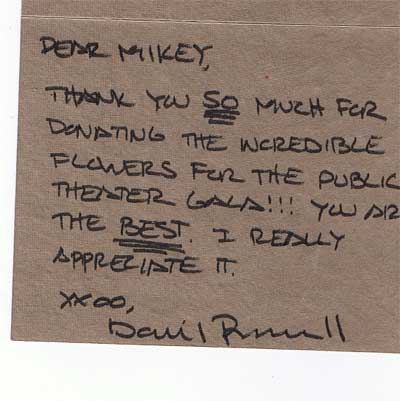 DEAR MIKEY,
THANK YOU SO MUCH FOR
DONATING THE INCREDIBLE
FLOWERS FOR THE PUBLIC
THEATER GALA!!! YOU AR
THE BEST. I REALLY
APPRECIATE IT.
XXOO,